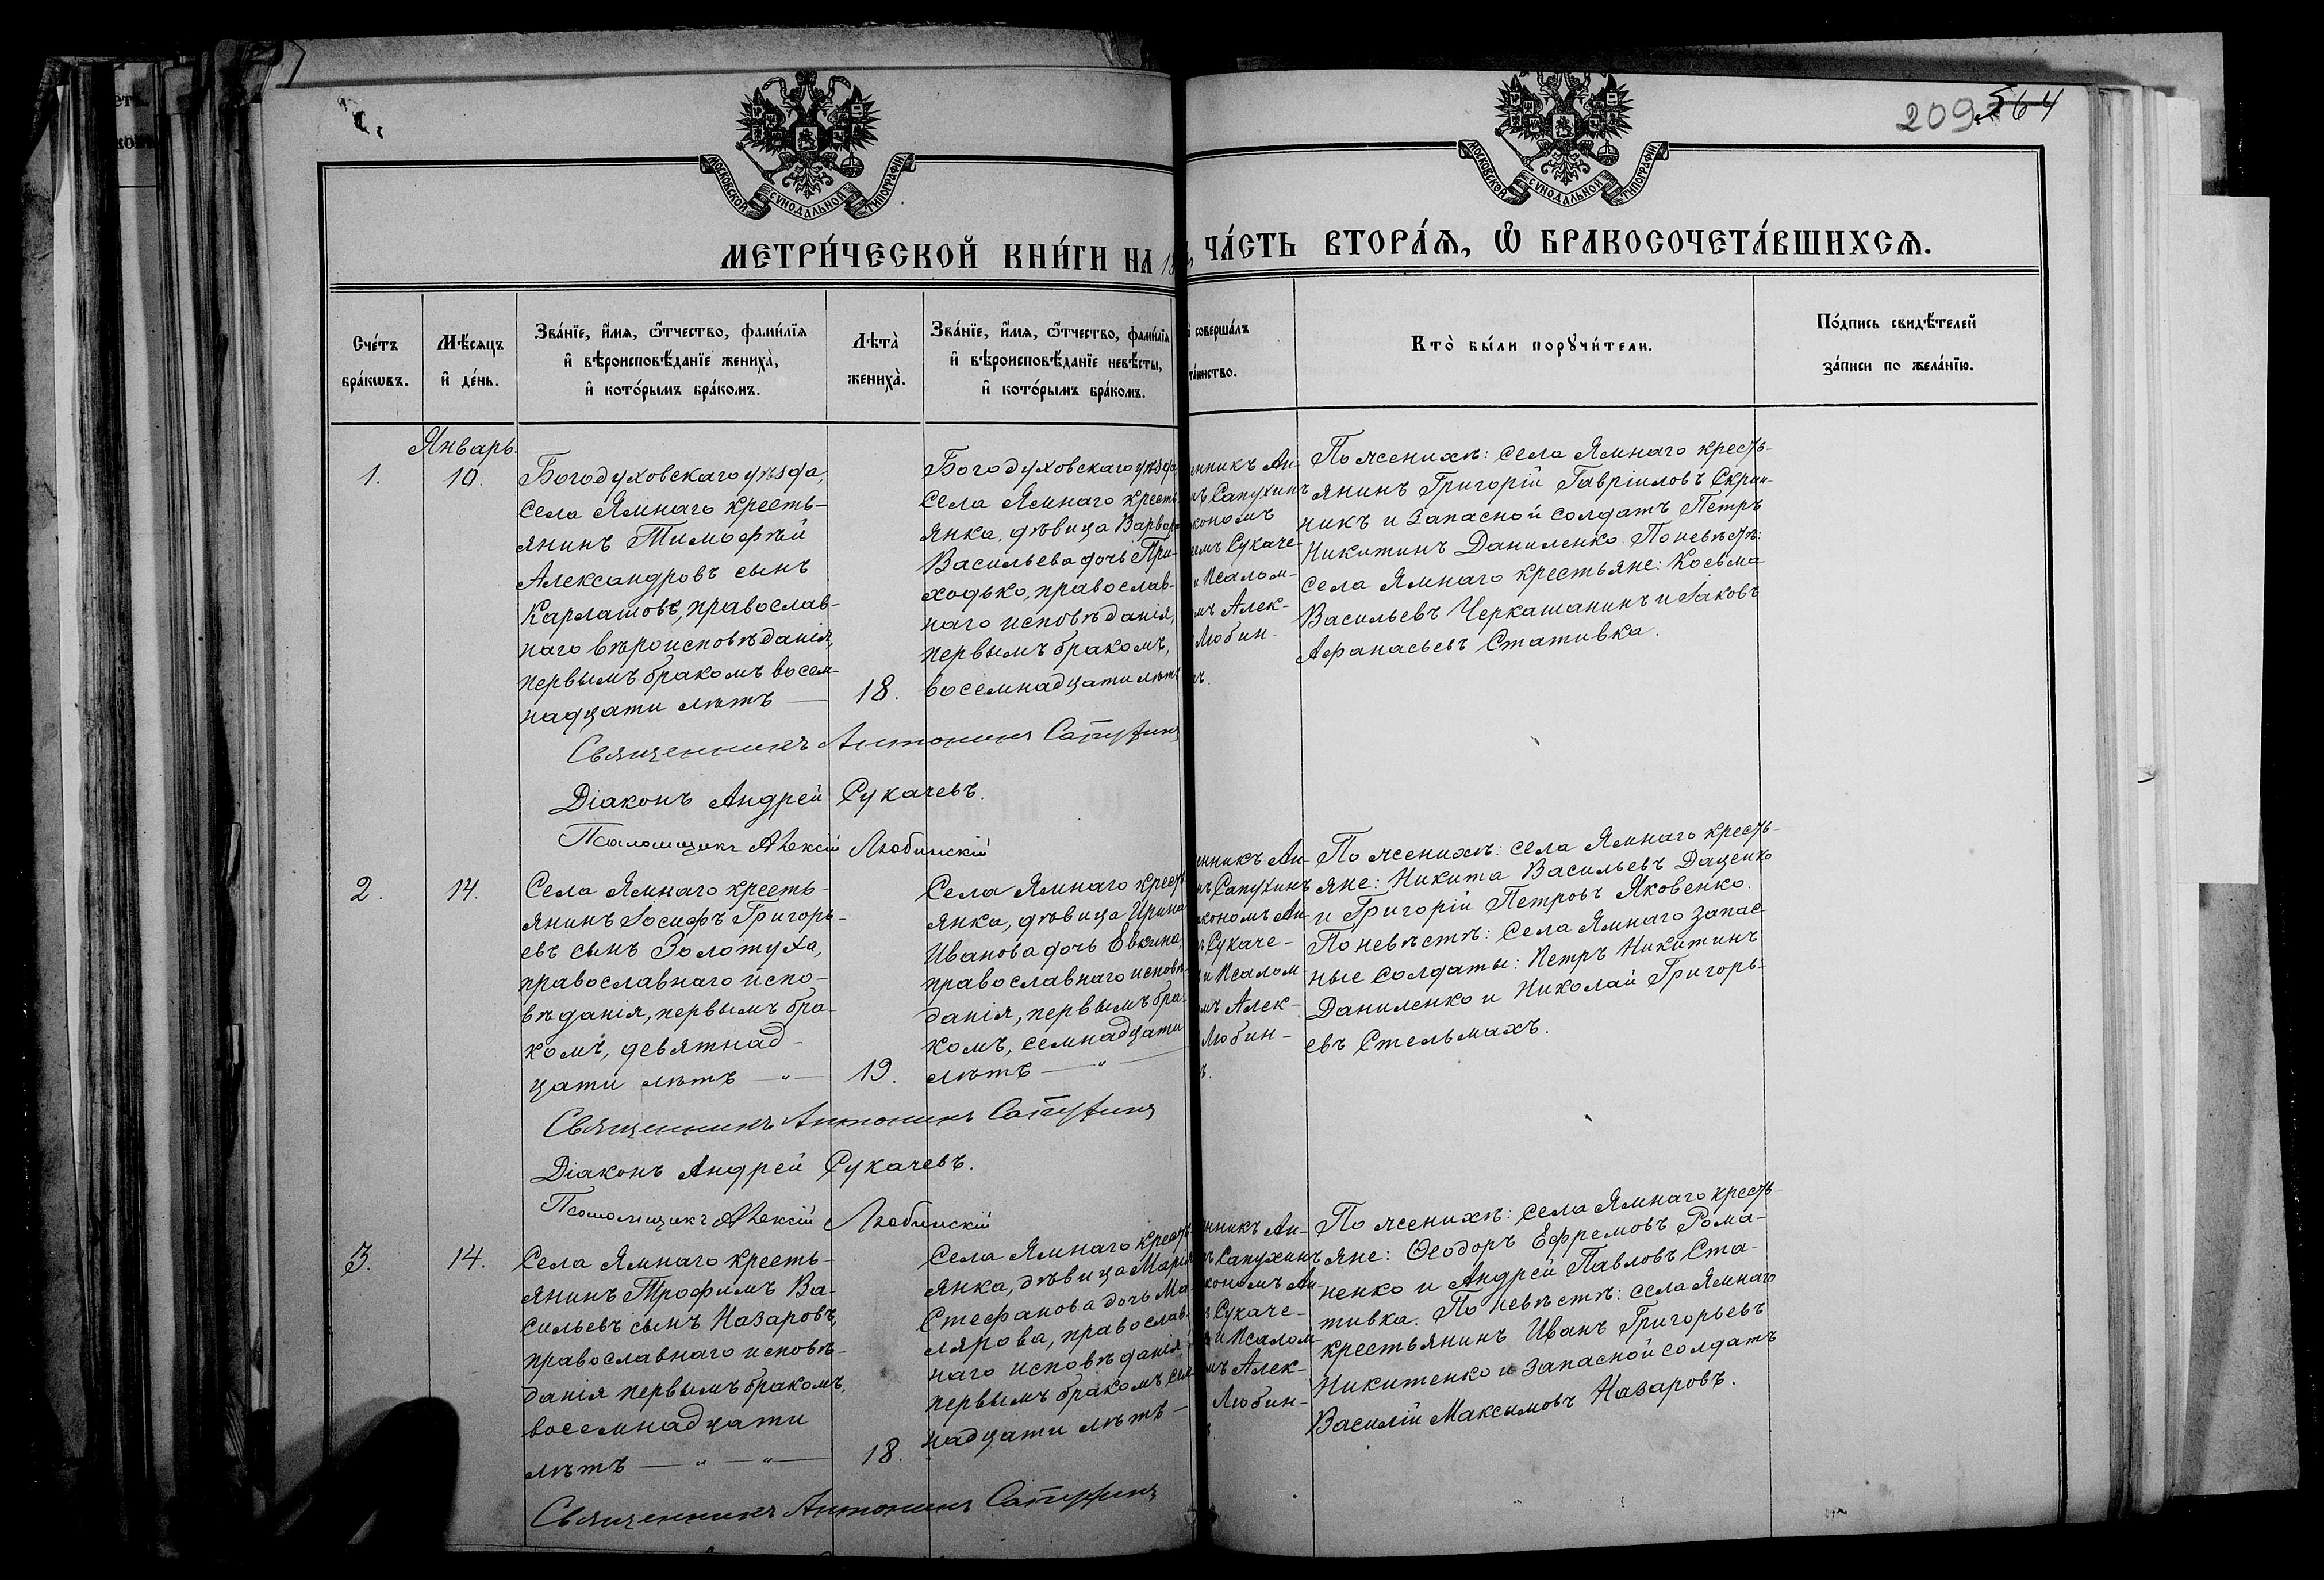 209. 564
МОСКОВСКОЙ СѴНОДАЛЬНОЙ ТИПОГРАФІИ
МОСКОВСКОЙ СѴНОДАЛЬНОЙ ТИПОГРАФІИ
МЕТРИ́ЧЕСКОЙ КНИ́ГИ НА
ЧА́СТЬ ВТОРА́Ѧ, Ѽ БРАКОСОЧЕТА́ВШИХСѦ.
Сче́тъ
бра́кѡвъ.
Мѣ́сяцъ
и҆ де́нь.
Зва́нїе, и҆́мя, ѻ҆́тчество, фами́лїя
и҆ вѣроисповѣ́данїе жениха̀,
и҆ кото́рымъ бра́комъ.
Лѣта̀
жениха̀.
Зва́нїе, и҆́мя, ѻ҆́тчество, фами́лїя
и҆ вѣроисповѣ́данїе невѣ́сты,
и҆ кото́рымъ бра́комъ.
совершáлъ
та́инство.
Кто̀ бы́ли порꙋчи́тели.
По́дпись свидѣ́телей
за́писи по жела́нїю.
Январь.
1.
10.
Богодуховскаго уѣзда,
села Ямнаго кресть-
янинъ Тимофѣй
Александровъ сынъ
Карламовъ, православ-
наго вѣроисповѣданія,
первымъ бракомъ восем-
надцати лѣтъ —
18.
Богодуховскаго уѣзда
села Ямнаго кресть
янка, дѣвица Варвара
Васильева дочь При-
ходько, православ-
наго исповѣданія,
первымъ бракомъ,
восемнадцати лѣтъ
енникъ Ан-
нъ Сапухинъ
кономъ
емъ Сукаче-
и Псалом-
мъ Алек-
Любин-
ъ.
По женихѣ: села Ямнаго кресть-
янинъ Григорій Гавріиловъ Скрын-
никъ и запасной солдатъ Петръ
Никитинъ Даниленко. По невѣстѣ:
села Ямнаго крестьяне: Косьма
Васильевъ Черкашанинъ и Іаковъ
Афанасьевъ Стативка.
Священникъ Антонинъ Сапухинъ
Діаконъ Андрей Сукачевъ.
Псаломщикъ Алексій Любинскій
2.
14.
Села Ямнаго кресть-
янинъ Іосифъ Григорь-
евъ сынъ Золотуха,
православнаго испо-
вѣданія, первымъ бра-
комъ, девятнад-
цати лѣтъ — „ —
19.
Села Ямнаго крест
янка, дѣвица Ирина
Иванова дочь Евкина,
православнаго исповѣ-
данія, первымъ бра-
комъ, семнадцати
лѣтъ — „ —
енникъ Ан-
нъ Сапухинъ
кономъ Ан-
Сукаче-
и Псалом
мъ Алек-
Любин-
ъ.
По женихѣ: села Ямнаго кресть-
яне: Никита Васильевъ Даценко
и Григорій Петровъ Яковенко.
По невѣстѣ: села Ямнаго запас-
ные солдаты: Петръ Никитинъ
Даниленко и Николай Григорь-
евъ Стельмахъ.
Священникъ Антонинъ Сапухинъ
Діаконъ Андрей Сукачевъ.
Псаломщикъ Алексій Любинскій
3.
14.
Села Ямнаго кресть-
янинъ Трофимъ Ва-
сильевъ сынъ Назаровъ,
православнаго исповѣ-
данія первымъ бракомъ,
восемнадцати
лѣтъ — „ — „ —
18.
Села Ямнаго кресть-
янка, дѣвица Марія
Стефанова дочь Ма-
лярова, православ-
наго исповѣданія
первымъ бракомъ сем
надцати лѣтъ —
нникъ Ан-
ъ Сапухинъ
кономъ Ан-
Сукаче-
и Псалом
мъ Алек-
Любин-
По женихѣ: села Ямнаго кресть-
яне: Ѳеодоръ Ефремовъ Рома-
ненко и Андрей Павловъ Ста-
тивка. По невѣстѣ: села Ямнаго
крестьянинъ Иванъ Григорьевъ
Никитенко и запасной солдатъ
Василій Максимовъ Назаровъ.
Священникъ Антонинъ Сапухинъ